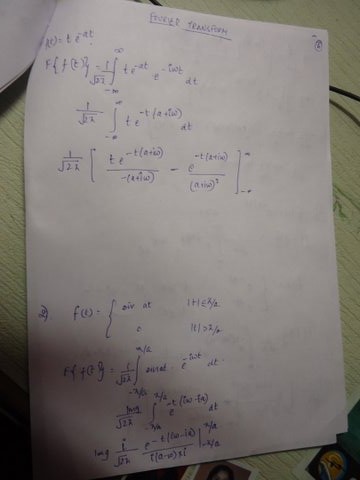 FOURIER TRANSFORM
f(t) = t e^-at
F{f(t)} = 1/√2π ∫_-∞^∞ t e^-at e^-iωt dt
1/√2π ∫_-∞^∞ t e^-t(a+iω) dt
1/√2π [ t e^-t(a+iω) / -(a+iω) - e^-t(a+iω) / (a+iω)² ]_-∞^∞
2) f(t) = { sin at |t| ≤ π/a
0 |t| > π/a
F{f(t)} = 1/√2π ∫_-π/a^π/a sin at · e^-iωt dt
img/√2π ∫_-π/a^π/a e^-t(iω-ia) dt
img 1/√2π e^-t(iω-ia) / i(a-ω)×i |_-π/a^π/a